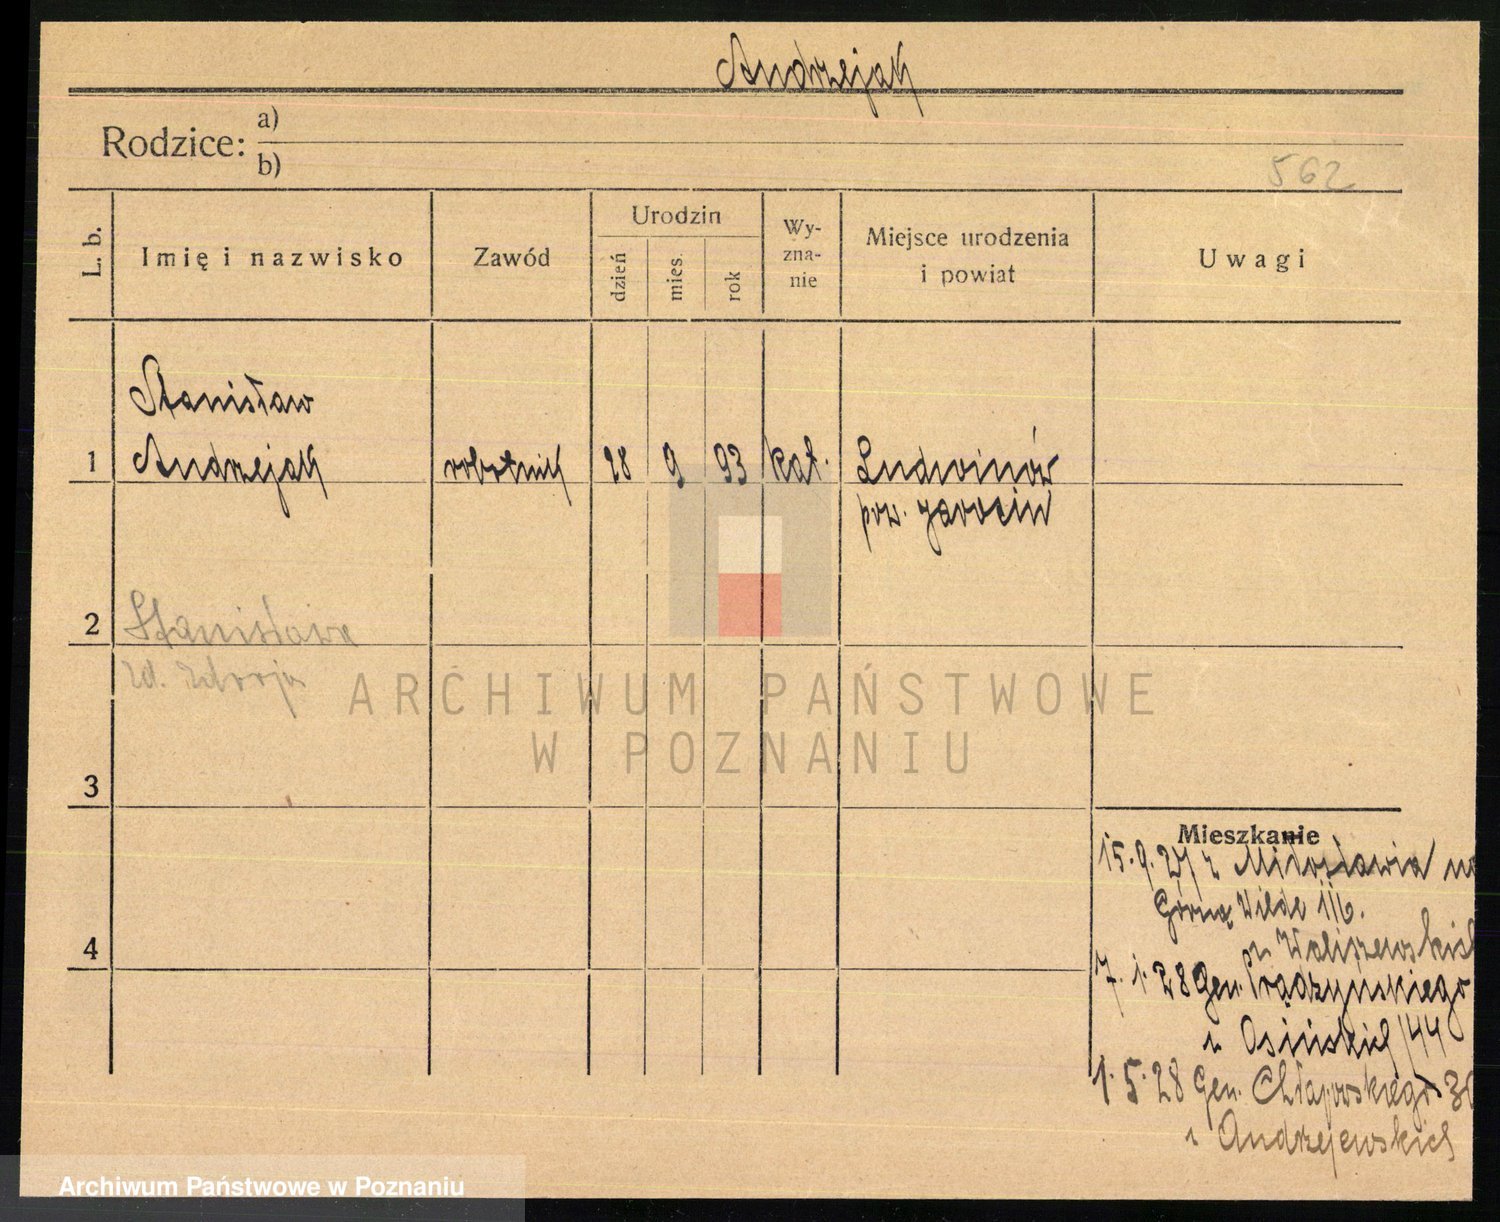 Andrzejak
Rodzice: a)
b)
562
L. b.
Imię i nazwisko
Zawód
Urodzin
dzień
mies.
rok
Wy-
zna-
nie
Miejsce urodzenia
i powiat
Uwagi
Stanisław
1 Andrzejak robotnik 28 9 93 kat. Ludwinów
pow. Jarocin
2 Stanisława
zd.
ARCHIWUM PAŃSTWOWE
W POZNANIU
3
Mieszkanie
15.9.27 z Miłosławia na
Górną Wilde 116.
4
u Waliszewskich
7.1.28 Gen. Prądzyńskiego
u Osińskich 44
1.5.28 Gen. Chłapowskiego
u Andrzejewskich
Archiwum Państwowe w Poznaniu